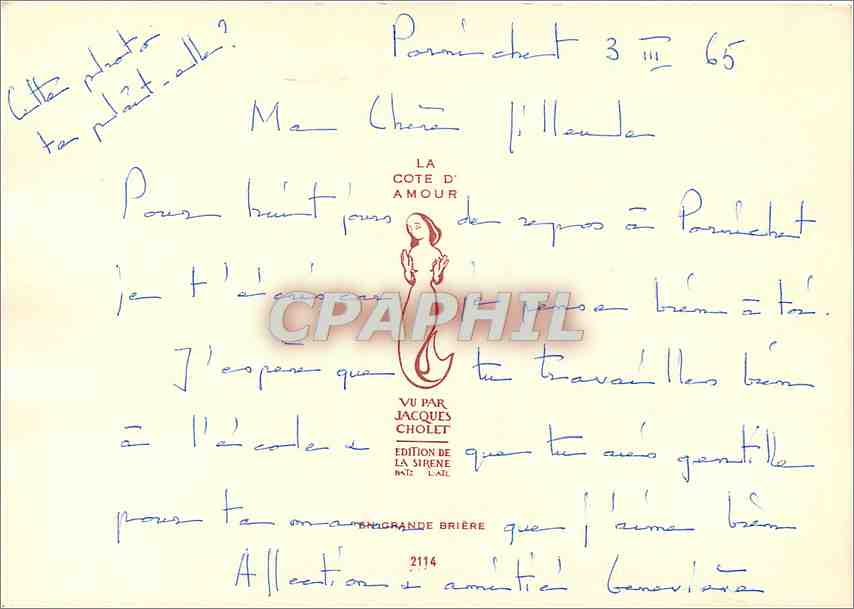 Pornichet 3 III 65
Cette photo
te plaît-elle?
Ma Chère filleule
LA
COTE D'
AMOUR
Pour huit jours de repos à Pornichet
je t'écris car je pense bien à toi.
CPAPHIL
J'espère que tu travailles bien
VU PAR
JACQUES
CHOLET
à l'école & que tu es gentille
EDITION DE
LA SIRENE
BATZ L. ATL.
pour ta maman que j'aime bien
EN GRANDE BRIÈRE
2114
Affection & amitié Geneviève